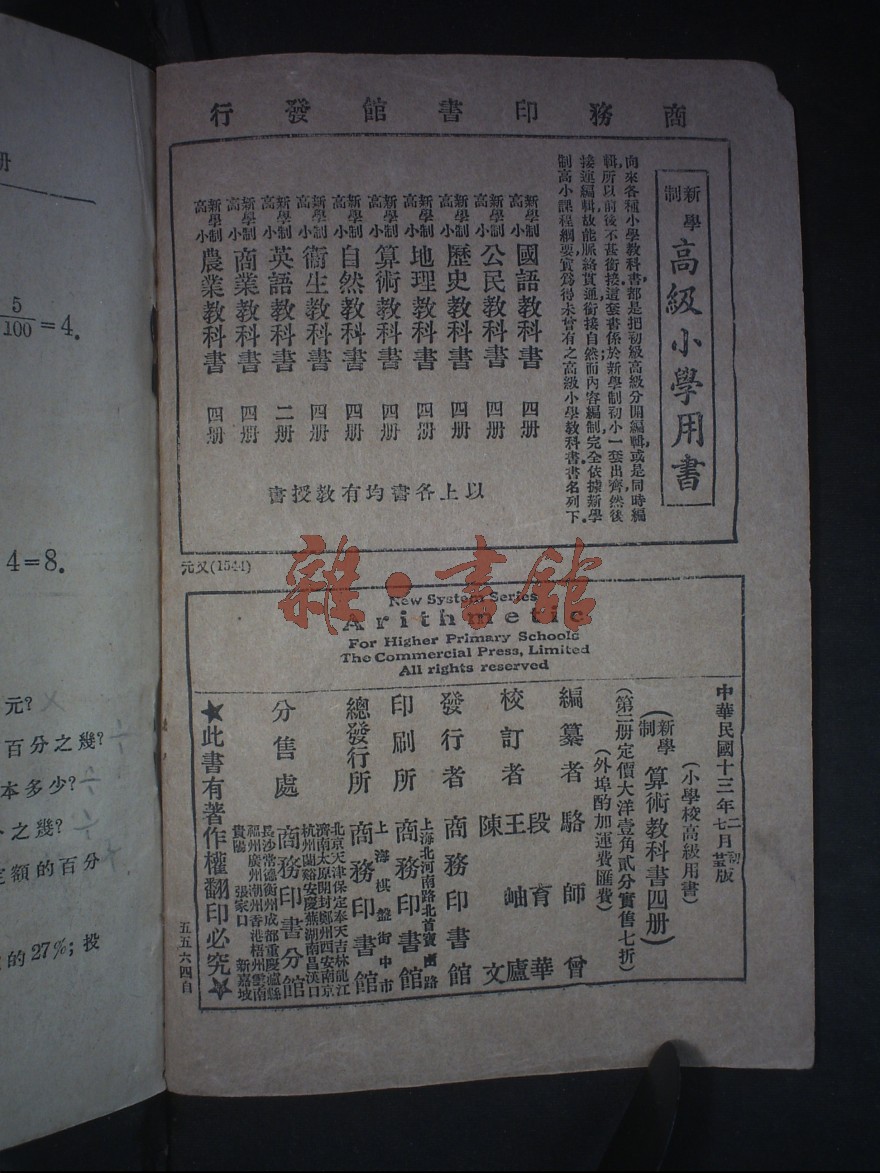 商務印書館發行
新學制高級小學用書
向來各種小學教科書,都是把初級高級分開編輯,或是同時編
輯,所以前後不甚銜接;這套書係於新學制初小一套出齊,然後
接連編輯,故能脈絡貫通,銜接自然,而內容編制,完全依據新學
制高小課程綱要,實爲得未曾有之高級小學教科書,書名列下.
新學制高小國語教科書 四册
新學制高小公民教科書 四册
新學制高小歷史教科書 四册
新學制高小地理教科書 四册
新學制高小算術教科書 四册
新學制高小自然教科書 四册
新學制高小衞生教科書 四册
新學制高小英語教科書 二册
新學制高小商業教科書 四册
新學制高小農業教科書 四册
以上各書均有教授書
元又(1544)
雜·書館
New System Series
Arithmetic
For Higher Primary Schools
The Commercial Press, Limited
All rights reserved
中華民國十三年二七月初版
(小學校高級用書)
(新學制算術教科書四册)
(第二册定價大洋壹角貳分實售七折)
(外埠酌加運費匯費)
編纂者 駱師曾
校訂者 段育華
王岫廬
陳文
發行者 商務印書館
印刷所 上海北河南路北首寶山路
商務印書館
總發行所 上海棋盤街中市
商務印書館
分售處
北京天津保定奉天吉林龍江
濟南太原開封鄭州西安南京
杭州蘭谿安慶蕪湖南昌漢口
商務印書分館
長沙常德衡州成都重慶瀘縣
福州廣州潮州香港梧州雲南
貴陽 張家口 新嘉坡
★此書有著作權翻印必究★
五五六四自
册
5/100=4.
4=8.
元?
百分之幾?
本多少?
分之幾?
定額的百分
的27%;投